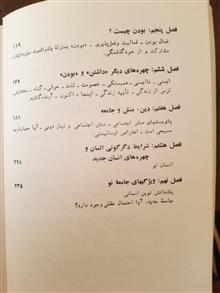 فصل پنجم: بودن چیست ؟
فعال بودن ـ فعالیت وفعل‌پذیری ـ «بودن» بمنزلهٔ یک‌واقعیت میل‌به‌ایثار، ۱۱۹
مشارکت و از خودگذشتگی.
فصل ششم: چهره‌های دیگر «داشتن» و «بودن»
امنیت ـ ناامنی ـ همبستگی ـ خصومت ـ لذت ـ خوشی ـ گناه ـ بخشایش ۱۴۹
ترس از زندگی ـ تأیید زندگی ـ اینجا، اکنون ـ آینده، گذشته.
فصل هفتم: دین، منش و جامعه
پاویستهای منش اجتماعی ـ منش اجتماعی و نیاز دینی ـ آیا جهان‌غرب ۱۸۱
مسیحی است ـ اعتراض اومانیستی.
فصل هشتم: شرایط دگرگونی انسان و
چهره‌های انسان جدید ۲۲۸
انسان نو
فصل نهم: ویژگیهای جامعهٔ نو ۲۳۵
یک‌دانش نوین انسانی
جامعهٔ جدید: آیا احتمال عقلی وجود دارد؟